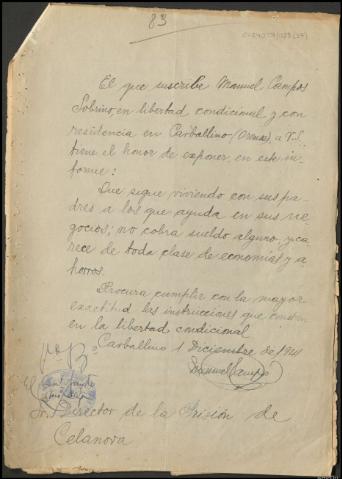 83
El que suscribe Manuel Campos
Sobrino, en libertad condicional y con
residencia en Carballino, (Orense), a V.S.
tiene el honor de exponer, en este in-
forme:
Que sigue viviendo con sus pa-
dres a los que ayuda en sus ne-
gocios; no cobra sueldo alguno y ca-
rece de toda clase de economías y a
horros.
Procura cumplir con la mayor
exactitud las instrucciones que
en la libertad condicional
Carballino 1 Diciembre de 1941
Manuel Campos
Sr. Director de la Prisión de
Celanova